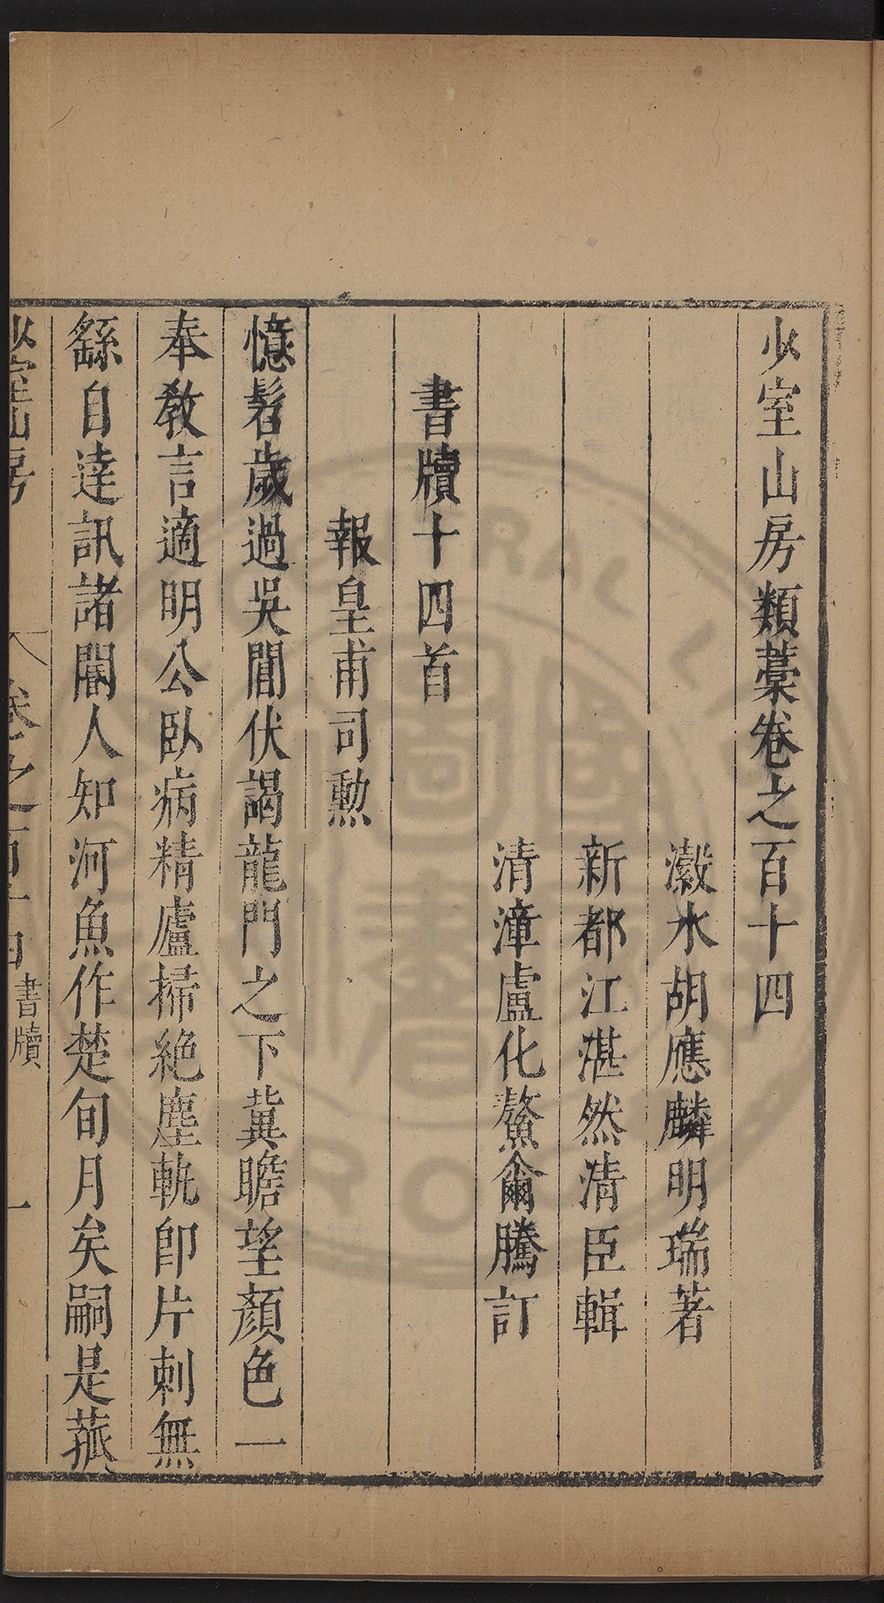 少室山房類藁卷之百十四
瀫水胡應麟明瑞著
新都江湛然清臣輯
清漳盧化鰲爾騰訂
書牘十四首
報皇甫司勲
憶髫歲過吳閶伏謁龍門之下兾瞻望顏色一
奉教言適明公臥病精廬掃絶塵軌卽片刺無
繇自達訊諸閽人知河魚作楚旬月矣嗣是菰
少室山房 卷之百十四 書牘 一